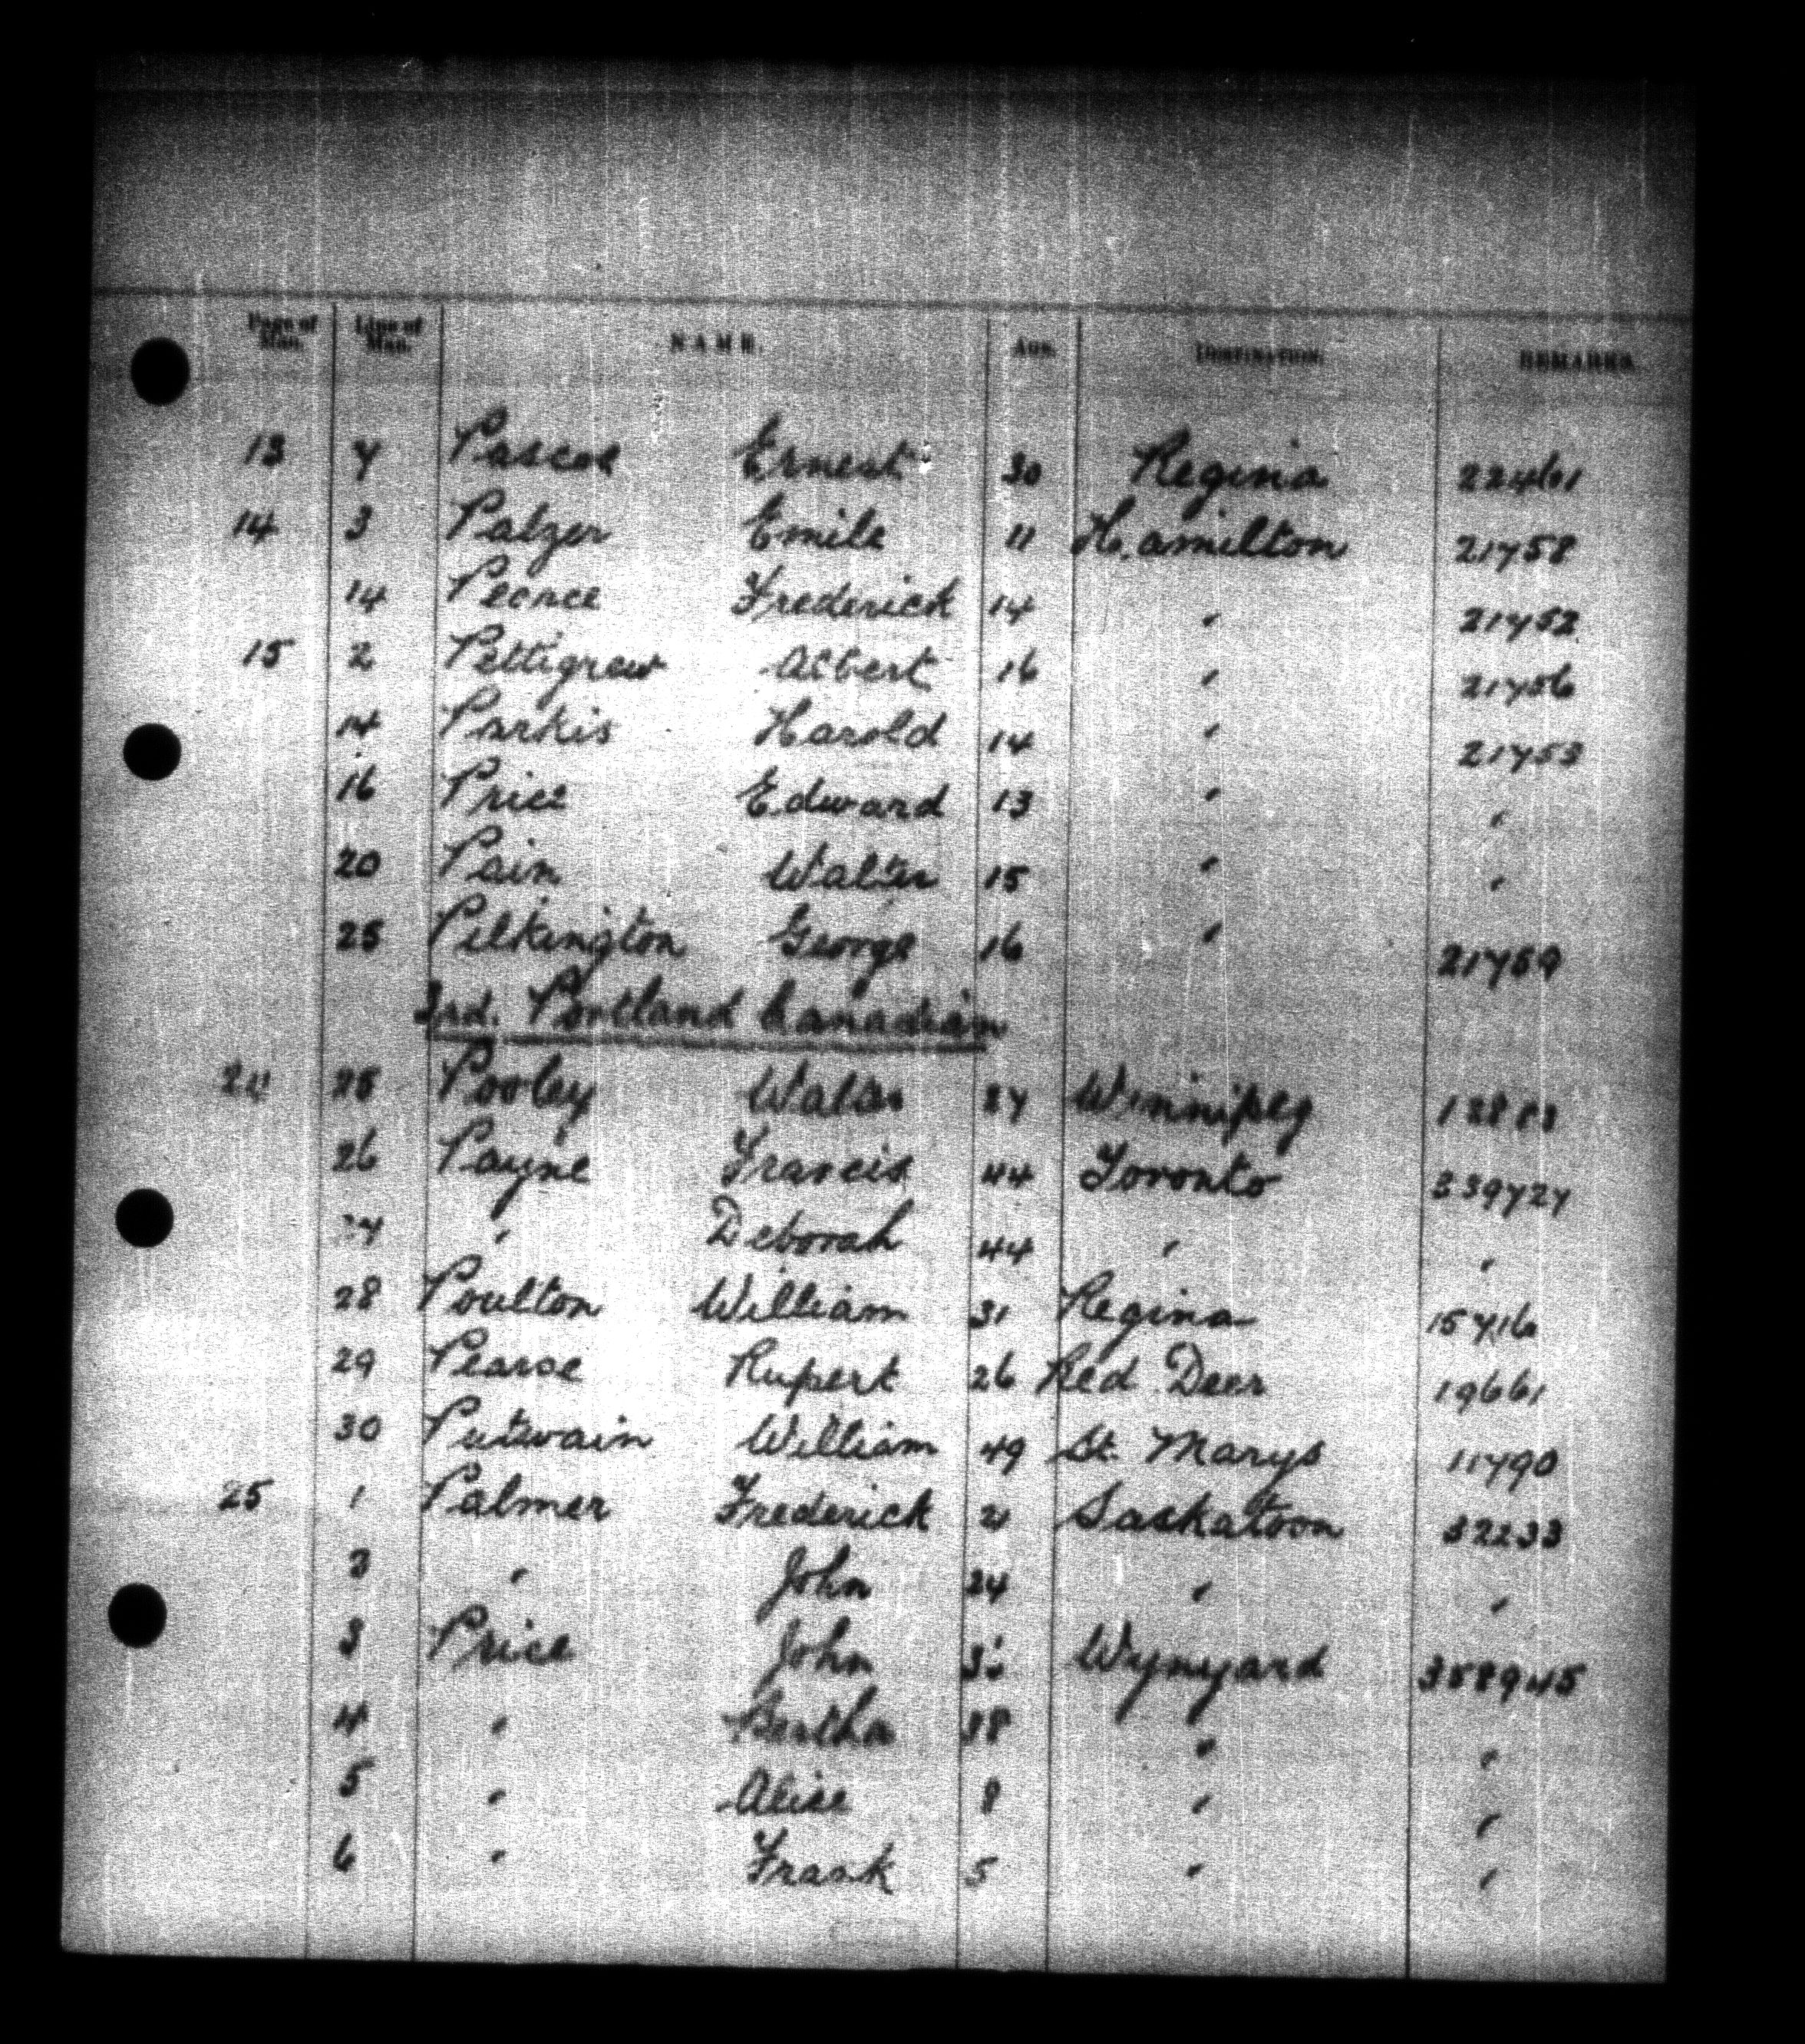 Page of Man. Line of Man. NAME. AGE. DESTINATION. REMARKS.
13 7 Pascoe Ernest 30 Regina 22461
14 3 Palzer Emile 11 Hamilton 21758
14 Pearce Frederick 14 " 21752
15 2 Pettigrew Albert 16 " 21756
14 Parkis Harold 14 " 21753
16 Price Edward 13 " "
20 Pain Walter 15 " "
25 Pilkington George 16 " 21759
3rd. Portland Canadian
24 25 Pooley Walter 27 Winnipeg
26 Payne Francis 44 Toronto 339727
27 " Deborah 44 " "
28 Poulton William 31 Regina 15716
29 Pearse Rupert 26 Red Deer 19661
30 Putwain William 49 St. Marys 11790
25 1 Palmer Frederick 21 Saskatoon 32233
3 " John 24 " "
3 Price John Wynyard 358945
4 " Bertha 38 " "
5 " Alice 8 " "
6 " Frank 5 " "